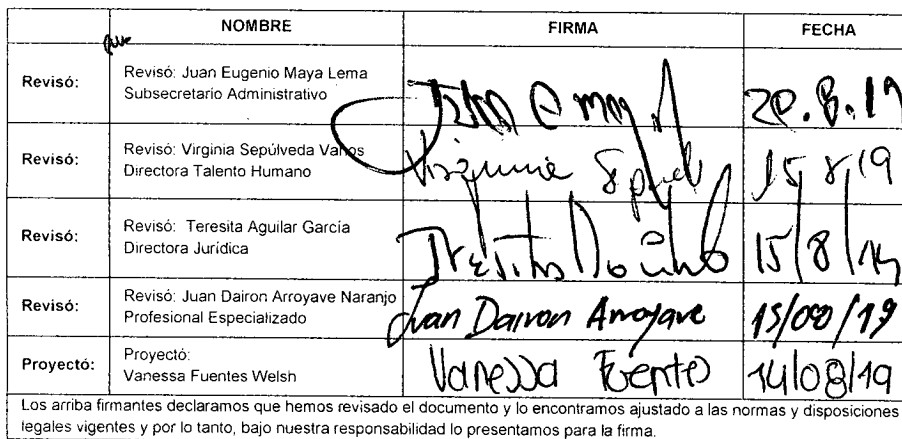 NOMBRE FIRMA FECHA
Revisó: Revisó: Juan Eugenio Maya Lema
Subsecretario Administrativo
20.8.19
Revisó: Revisó: Virginia Sepúlveda Vahos
Directora Talento Humano
15/8/19
Revisó: Revisó: Teresita Aguilar García
Directora Jurídica
15/8/19
Revisó: Revisó: Juan Dairon Arroyave Naranjo
Profesional Especializado
Juan Dairon Arroyave 15/08/19
Proyectó: Proyectó:
Vanessa Fuentes Welsh
Vanessa Fuentes 14/08/19
Los arriba firmantes declaramos que hemos revisado el documento y lo encontramos ajustado a las normas y disposiciones
legales vigentes y por lo tanto, bajo nuestra responsabilidad lo presentamos para la firma.